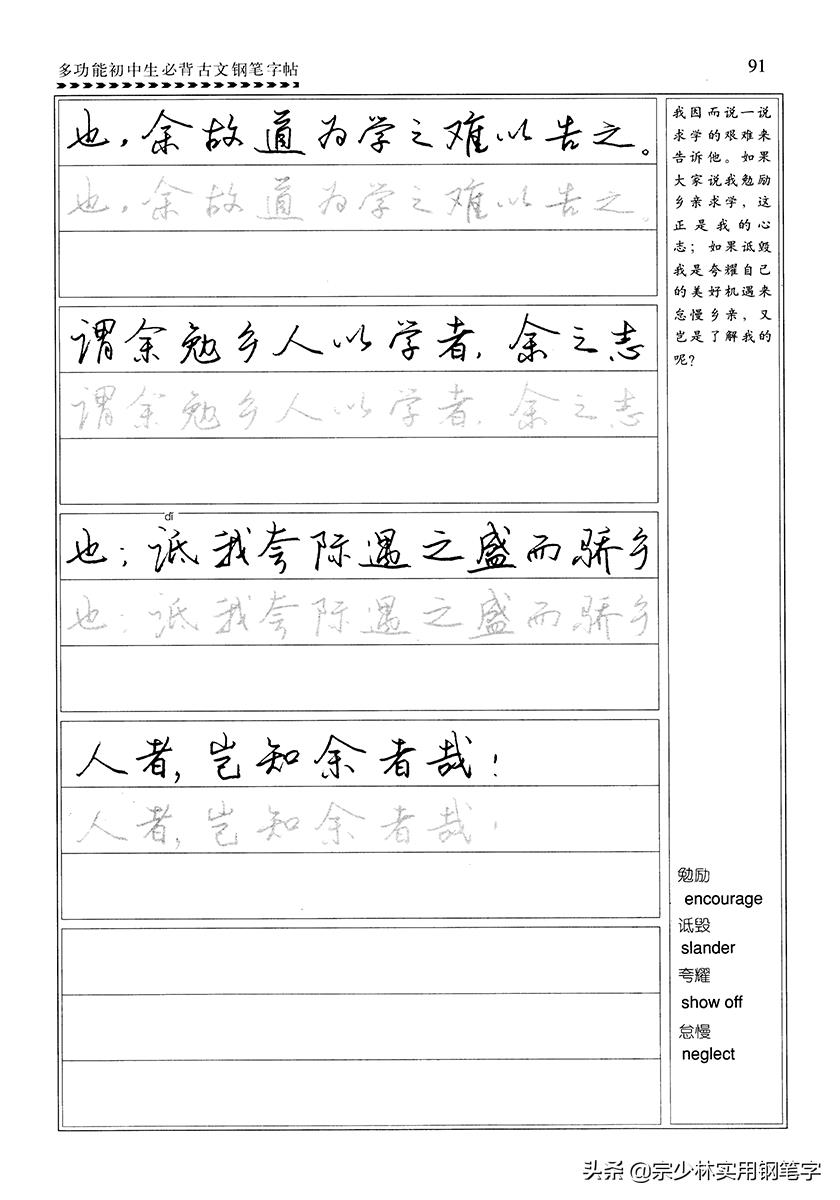 多功能初中生必背古文钢笔字帖
91
也，余故道为学之难以告之。
也，余故道为学之难以告之。
谓余勉乡人以学者，余之志
谓余勉乡人以学者，余之志
dǐ
也；诋我夸际遇之盛而骄乡
也；诋我夸际遇之盛而骄乡
人者，岂知余者哉！
人者，岂知余者哉！
我因而说一说
求学的艰难来
告诉他。如果
大家说我勉励
乡亲求学，这
正是我的心
志；如果诋毁
我是夸耀自己
的美好机遇来
怠慢乡亲，又
岂是了解我的
呢？
勉励
encourage
诋毁
slander
夸耀
show off
怠慢
neglect
头条 @宗少林实用钢笔字